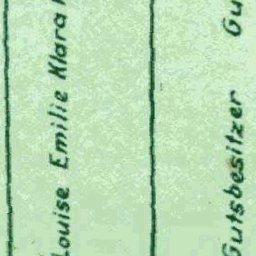 Louise Emilie Klara
Gutsbesitzer Gu